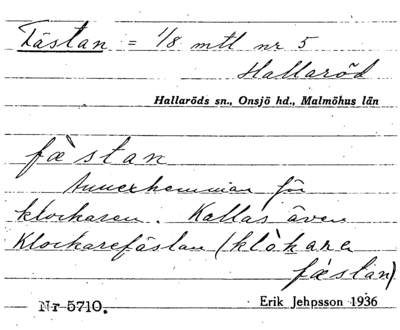 Fästan = 1/8 mtl nr 5
Hallaröd
Hallaröds sn., Onsjö hd., Malmöhus län
fæ̀stan
för
klockaren. Kallas även
Klockarefästan (klòkare
fæstan)
Nr 5710. Erik Jehpsson 1936